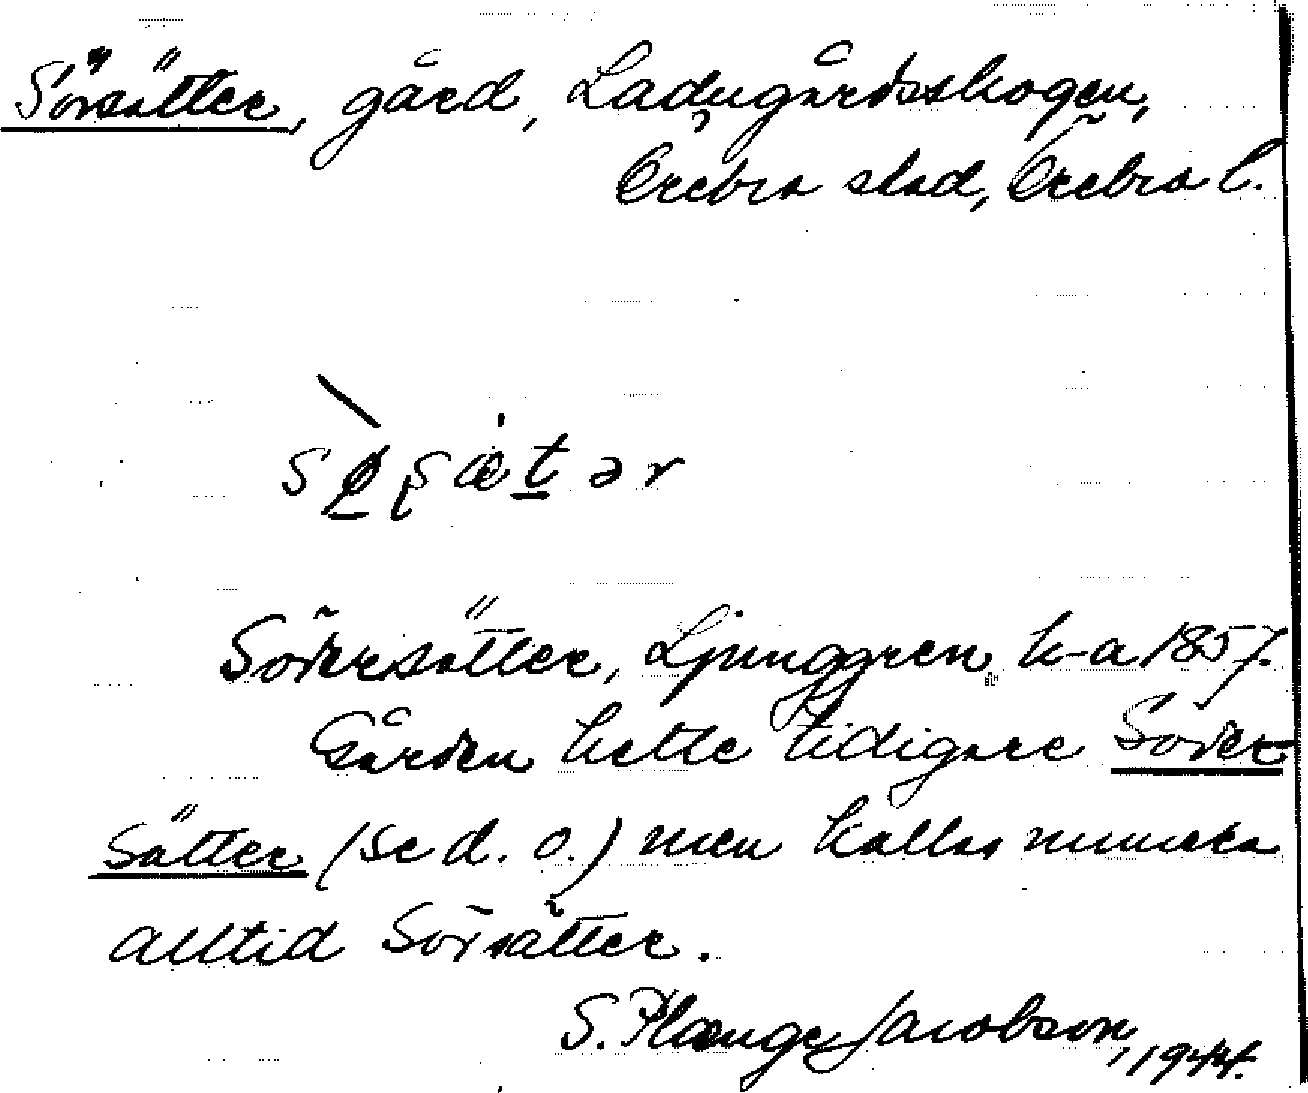 Sörsätter, gård, Ladugårdsskogen,
Örebro stad, Örebro l.
sø̀ʂætər
Södersätter, Ljunggren k-a 1857.
Gården hette tidigare Söder-
sätter (se d. o.) men kallas numera
alltid Sörsätter.
S. Plænge Jacobson, 1944.